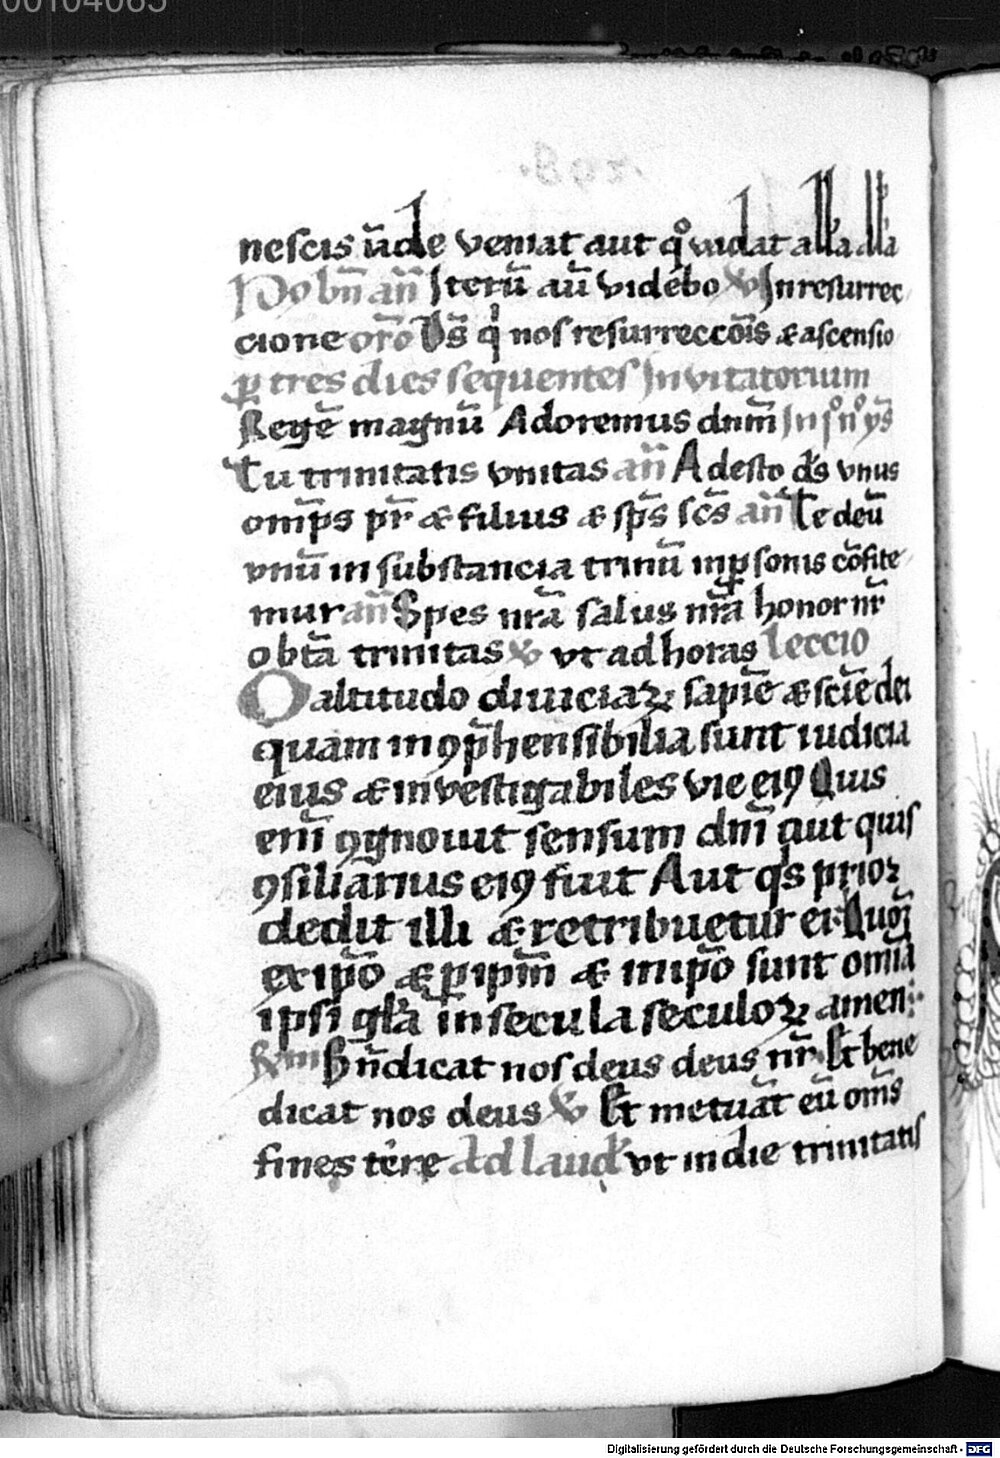 00104065
nescis ūde veniat aut qͦ vadat alla alla
Po bn̄ an̄ Iterū aū videbo ꝟ In resurrec
cione oro Ds̄ q nos resurreccōis & ascensio
ꝑ tres dies sequentes Invitatorium
Regē magnū Adoremus dnm̄ In iͦ nͦ ys̄
Tu trinitatis vnitas an̄ Adesto ds̄ vnus
omp̄s pr̄ & filius & sp̄s sc̄s an̄ Te deū
vnū in substancia trinū in ꝑsonis cōfite
mur an̄ Spes nr̄a salus nr̄a honor nr̄
o btā trinitas ꝟ vt ad horas Leccio
O altitudo diuiciaꝝ sapiē & sciē dei
quam inꝯp̄hensibilia sunt iudicia
eius & investigabiles vie eiꝯ Quis
enī ꝯgnouit sensum dnī aut quis
ꝯsiliarius eiꝯ fuit Aut qs prior
dedit illi & retribuetur ei Quoꝫ
ex ipō & ꝑ ipm̄ & in ipō sunt omīa
ipsi glā in secula seculoꝝ amen
Bn̄dicat nos deus deus nr̄ Et bene
dicat nos deus ꝟ Et metuāt eū om̄s
fines tere Ad laud vt in die trinitatis
Digitalisierung gefördert durch die Deutsche Forschungsgemeinschaft - DFG